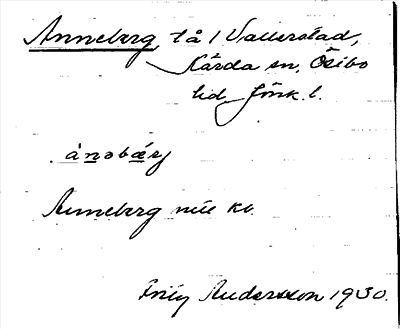 Anneberg, tå / Vallerstad,
Kärda sn, Östbo
hd Jönk. l.
ånəbärj
Anneberg nie kb.
Fritz Andersson 1930.